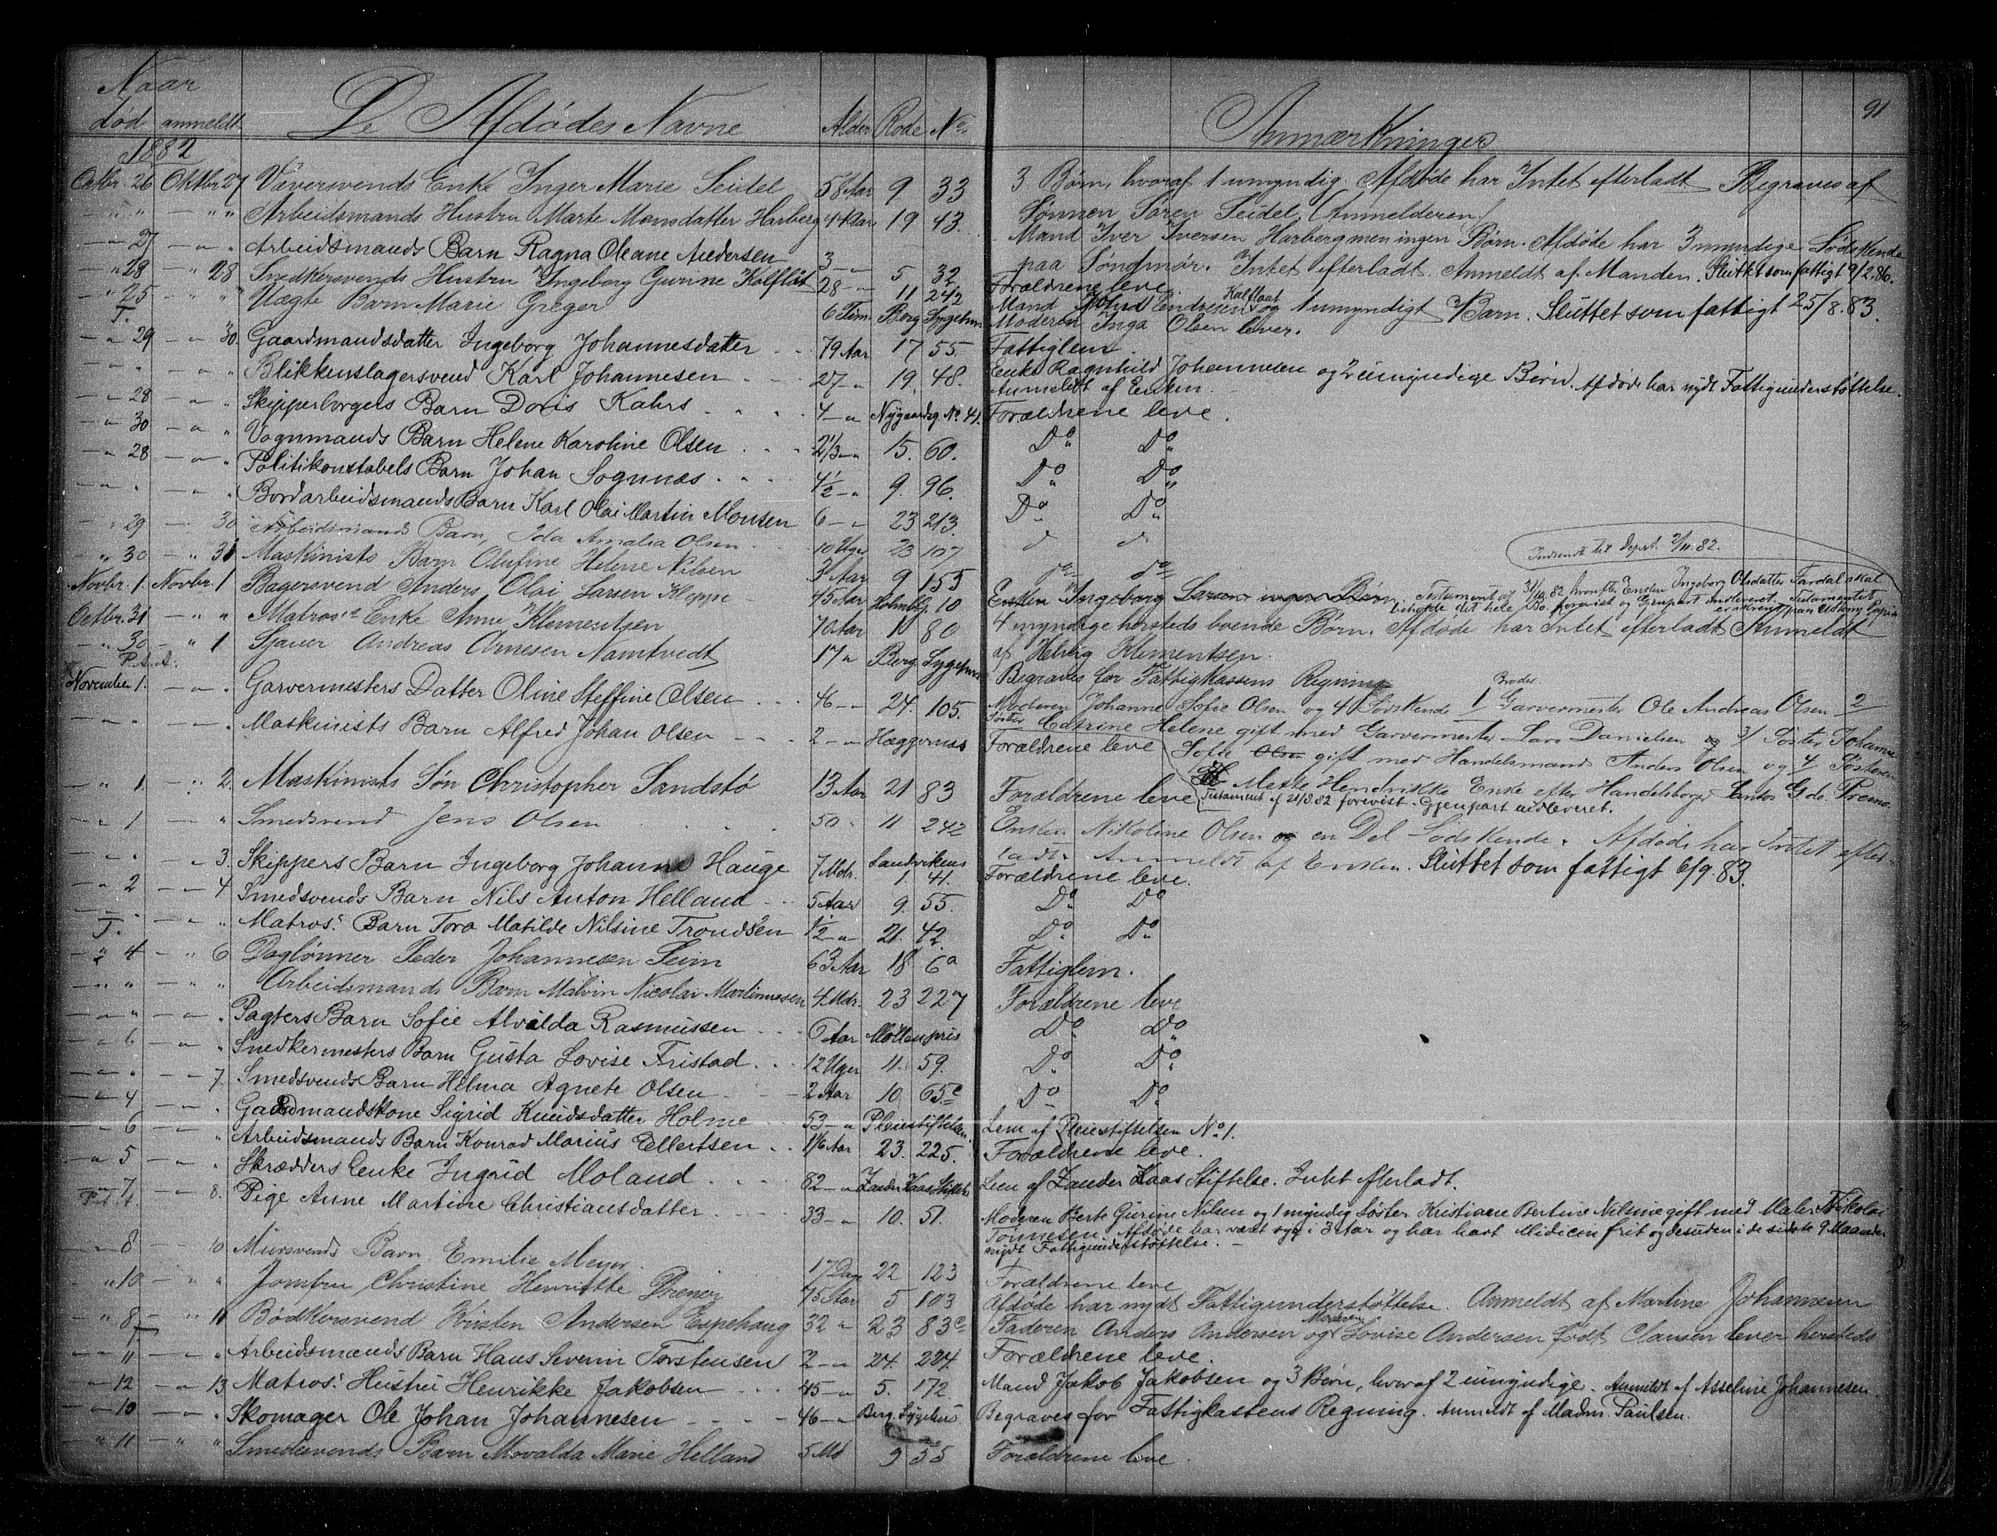 91
Naar
død anmeldt De Afdødes Navne Alder Rode No. Anmærkninger
1882
Octbr. 26 Oktbr 27 Væversvends Enke Inger Marie Seidel 58 Aar 9 33 3 Børn, hvoraf 1 umyndig. Afdøde har Intet efterladt. Begraves af
Sønnen Søren Seidel (Anmelderen)
" " — " " Arbeidsmands Hustru Marte Monsdatter Harberg 44 Aar 19 43. Mand Iver Iversen Harberg men ingen Børn. Afdøde har 3 myndige Sødskende
paa Søndmør. Intet efterladt. Anmeldt af Manden. Sluttet som fattigt 9/2.86.
" 27 — " " Arbeidsmands Barn Ragna Oleane Andersen 3 — " 5 32 Forældrene leve.
" 28 — " 28 Snedkersvends Hustru Ingeborg Gurine Kalflot 28 — " 11 242 Mand Endresen Kalfloat og 1 umyndigt Barn. Sluttet som fattigt 25/8.83.
" 25 " " Uægte Barn Marie Greger 6 Tim. Berg. Sygehus Moderen Inga Olsen lever.
T.
— " 29 — " 30. Gaardmandsdatter Ingeborg Johannesdatter 79 Aar 17 55. Fattiglem
— " " — " " Blikkenslagersvend Karl Johannesen 27 — " 19. 48. Enke Ragnhild Johannesen og 2 umyndige Børn. Afdøde har nydt Fattigunderstøttelse.
Anmeldt af Enken.
— " 28 — " " Skipperborgers Barn Doris Kahrs 4 — " Nygaardsg No 41. Forældrene leve.
— " 30 — " " Vognmands Barn Helene Karoline Olsen 2 1/3 — " 15. 60. Do Do
— " 28 — " " Politikonstabels Barn Johan Sognnæs 4 1/2 — " 9. 96. Do Do
— " " — " " Bordarbeidsmands Barn Karl Olai Martin Monsen 6 — " 23 213. Do Do
— " 29 — " 30 Arbeidsmands Barn Ida Amalia Olsen 10 Uger 23 107 d d
— " 30 — " 31 Maskinists Barn Olufine Helene Nilsen 3 Aar 9 155 do do
Indsendt til Depst. 2/11.82.
Novbr. 1 Novbr 1 Bagersvend Anders Olai Larsen Kleppe 45 Aar 10 Enken Ingeborg Larsen ingen Børn. Testament af 31/10 82 hvorefter Enken Ingeborg Olsdatter Tardal skal
beholde det hele Bo forevist og Gjenpart indleveret.
Octbr. 31 — " " Matros' Enke Anne Klementsen 70 Aar 10 80 4 myndige hersteds boende Børn. Afdøde har Intet efterladt Anmeldt
af Helvig Klementsen.
— " 30 — " 1 Andreas Arnesen Namtvedt 17 " Berg. Sygehus Begraves for Fattigkassens Regning
November 1. — " " Garvermesters Datter Oline Steffine Olsen 46 — " 24. 105. Moderen Johanne Sofie Olsen og 4 Sødskende 1 Broder Garvermester Ole Andreas Olsen 2
Søster Catrine Helene gift med Garvermester Lars Danielsen og 3/ Søster Johanne
— " " — " " Maskinists Barn Alfred Johan Olsen 2 — " Hæggernæs Forældrene leve
Sofie Olsen gift med Handelsmand Anders Olsen og 4/ Søsteren
Mette Hendrikke Enke efter Handelsborger
— " 1 — " 2. Maskinists Søn Christopher Sandstø 13 Aar 21 83 Forældrene leve. Testament af 21/8.82 forevist. Gjenpart indleveret.
— " 1 — " " Smedsvend Jens Olsen 50 " 11 242 Enken Nikoline Olsen og en Del Sødskende. Afdøde har Intet efter
ladt. Anmeldt af Enken. Sluttet som fattigt 6/9.83.
— " " — " 3. Skippers Barn Ingeborg Johanne Hauge 7 Mdr. Sandvikens 1. 41. Forældrene leve.
— " 2 — " 4 Smedsvends Barn Nils Anton Helland 5 Aar 9. 55. Do Do
— " " — " " Matros' Barn Tora Matilde Nilsine Trondsen 1/2 — " 21. 42. Do Do
T.
— " 4 — " 6 Daglønner Peder Johannesen Seim 63 Aar 18 6a Fattiglem.
" " — " " Arbeidsmands Barn Malvin Nicolai Martinussen 4 Mdr. 23 227 Forældrene leve
— " " — " " Pagters Barn Sofie Alvilda Rasmussen 6 Aar Møllenpris Do Do
— " 6 — " " Snedkermesters Barn Gusta Lovise Fristad 12 Uger 11. 59. Do Do
— " " — " 7. Smedsvends Barn Helma Agnete Olsen 2 Aar 10. 65c Do Do
— " 4 — " " Gaardmandskone Sigrid Knudsdatter Holme 53 — " Pleiestiftelsen. Lem af Pleiestiftelsen No 1.
— " 6 — " " Arbeidsmands Barn Konrad Marius Ellertsen 1 1/6 Aar 23. 225. Forældrene leve.
— " 5 — " " Skrædders Enke Ingrid Moland 82 — " Zander Kaas Stiftelse Lem af Zander Kaas Stiftelse. Intet efterladt.
— " 7 — " 8. Pige Anne Martine Christiansdatter 33 — " 10. 51. Moderen Berte Gurine Nilsen og 1 myndig Søster Kristiane Bertine Nilsine gift med Maler Nikolai
Tønnesen. Afdøde har været syg i 3 Aar og har havt Medicin frit og desuden i de sidste 9 Maaneder
nydt Fattigunderstøttelse.
— " 8 — " 10 Mursvends Barn Emilie Meyer 17 Dage 22 123 Forældrene leve
— " 10 — " " Jomfru Christine Henriette 75 Aar 5 103 Afdøde har nydt Fattigunderstøttelse. Anmeldt af Martine Johannesen
" 8 — " 11 Bødkersvend Kristen Andersen Espehaug 32 " 23 83c Faderen Anders Andersen og Moderen Lovise Andersen født Clausen lever hersteds
T.
— " 11 — " " Arbeidsmands Barn Hans Severin Torstensen 2 — " 24. 224. Forældrene leve.
— " 12 — " 13 Matros' Hustru Henrikke Jakobsen 45 — " 5. 172. Mand Jakob Jakobsen og 3 Børn, hvoraf 2 umyndige. Anmeldt af Asseline Johannesen.
— " 10 — " " Skomager Ole Johan Johannesen 46 — " Berg. Sygehus Begraves for Fattigkassens Regning. Anmeldt af Madm. Paulsen.
" 11 — " " Smedesvends Barn Marie Helland 5 Md 9 55 Forældrene leve.